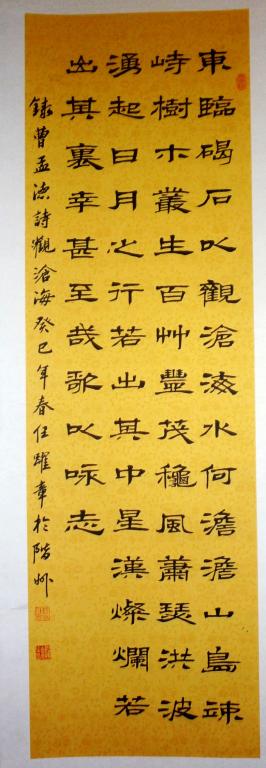 東臨碣石以觀滄海水何澹澹山島竦
峙樹木叢生百艸豐茂穐風蕭瑟洪波
湧起日月之行若出其中星漢燦爛若
出其裏幸甚至哉歌以咏志
錄曹孟德詩觀滄海癸巳年春任躍章於階州